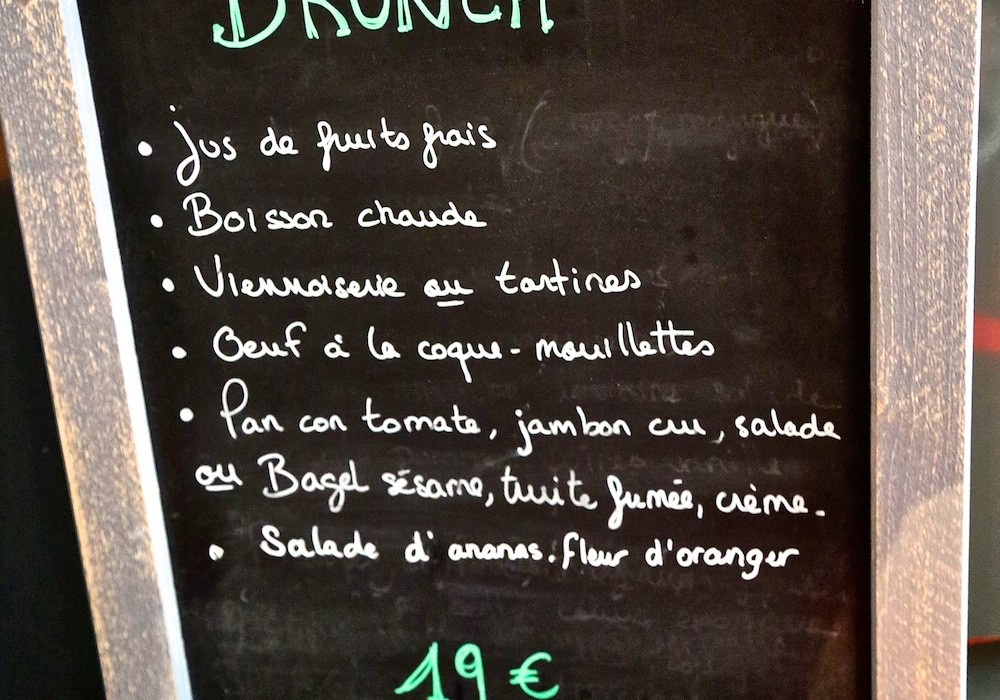 BRUNCH
• Jus de fruits frais
• Boisson chaude
• Viennoiserie ou tartines
• Oeuf à la coque - mouillettes
• Pan con tomate, jambon cru, salade
ou Bagel sésame, truite fumée, crème.
• Salade d'ananas. fleur d'oranger
19 €